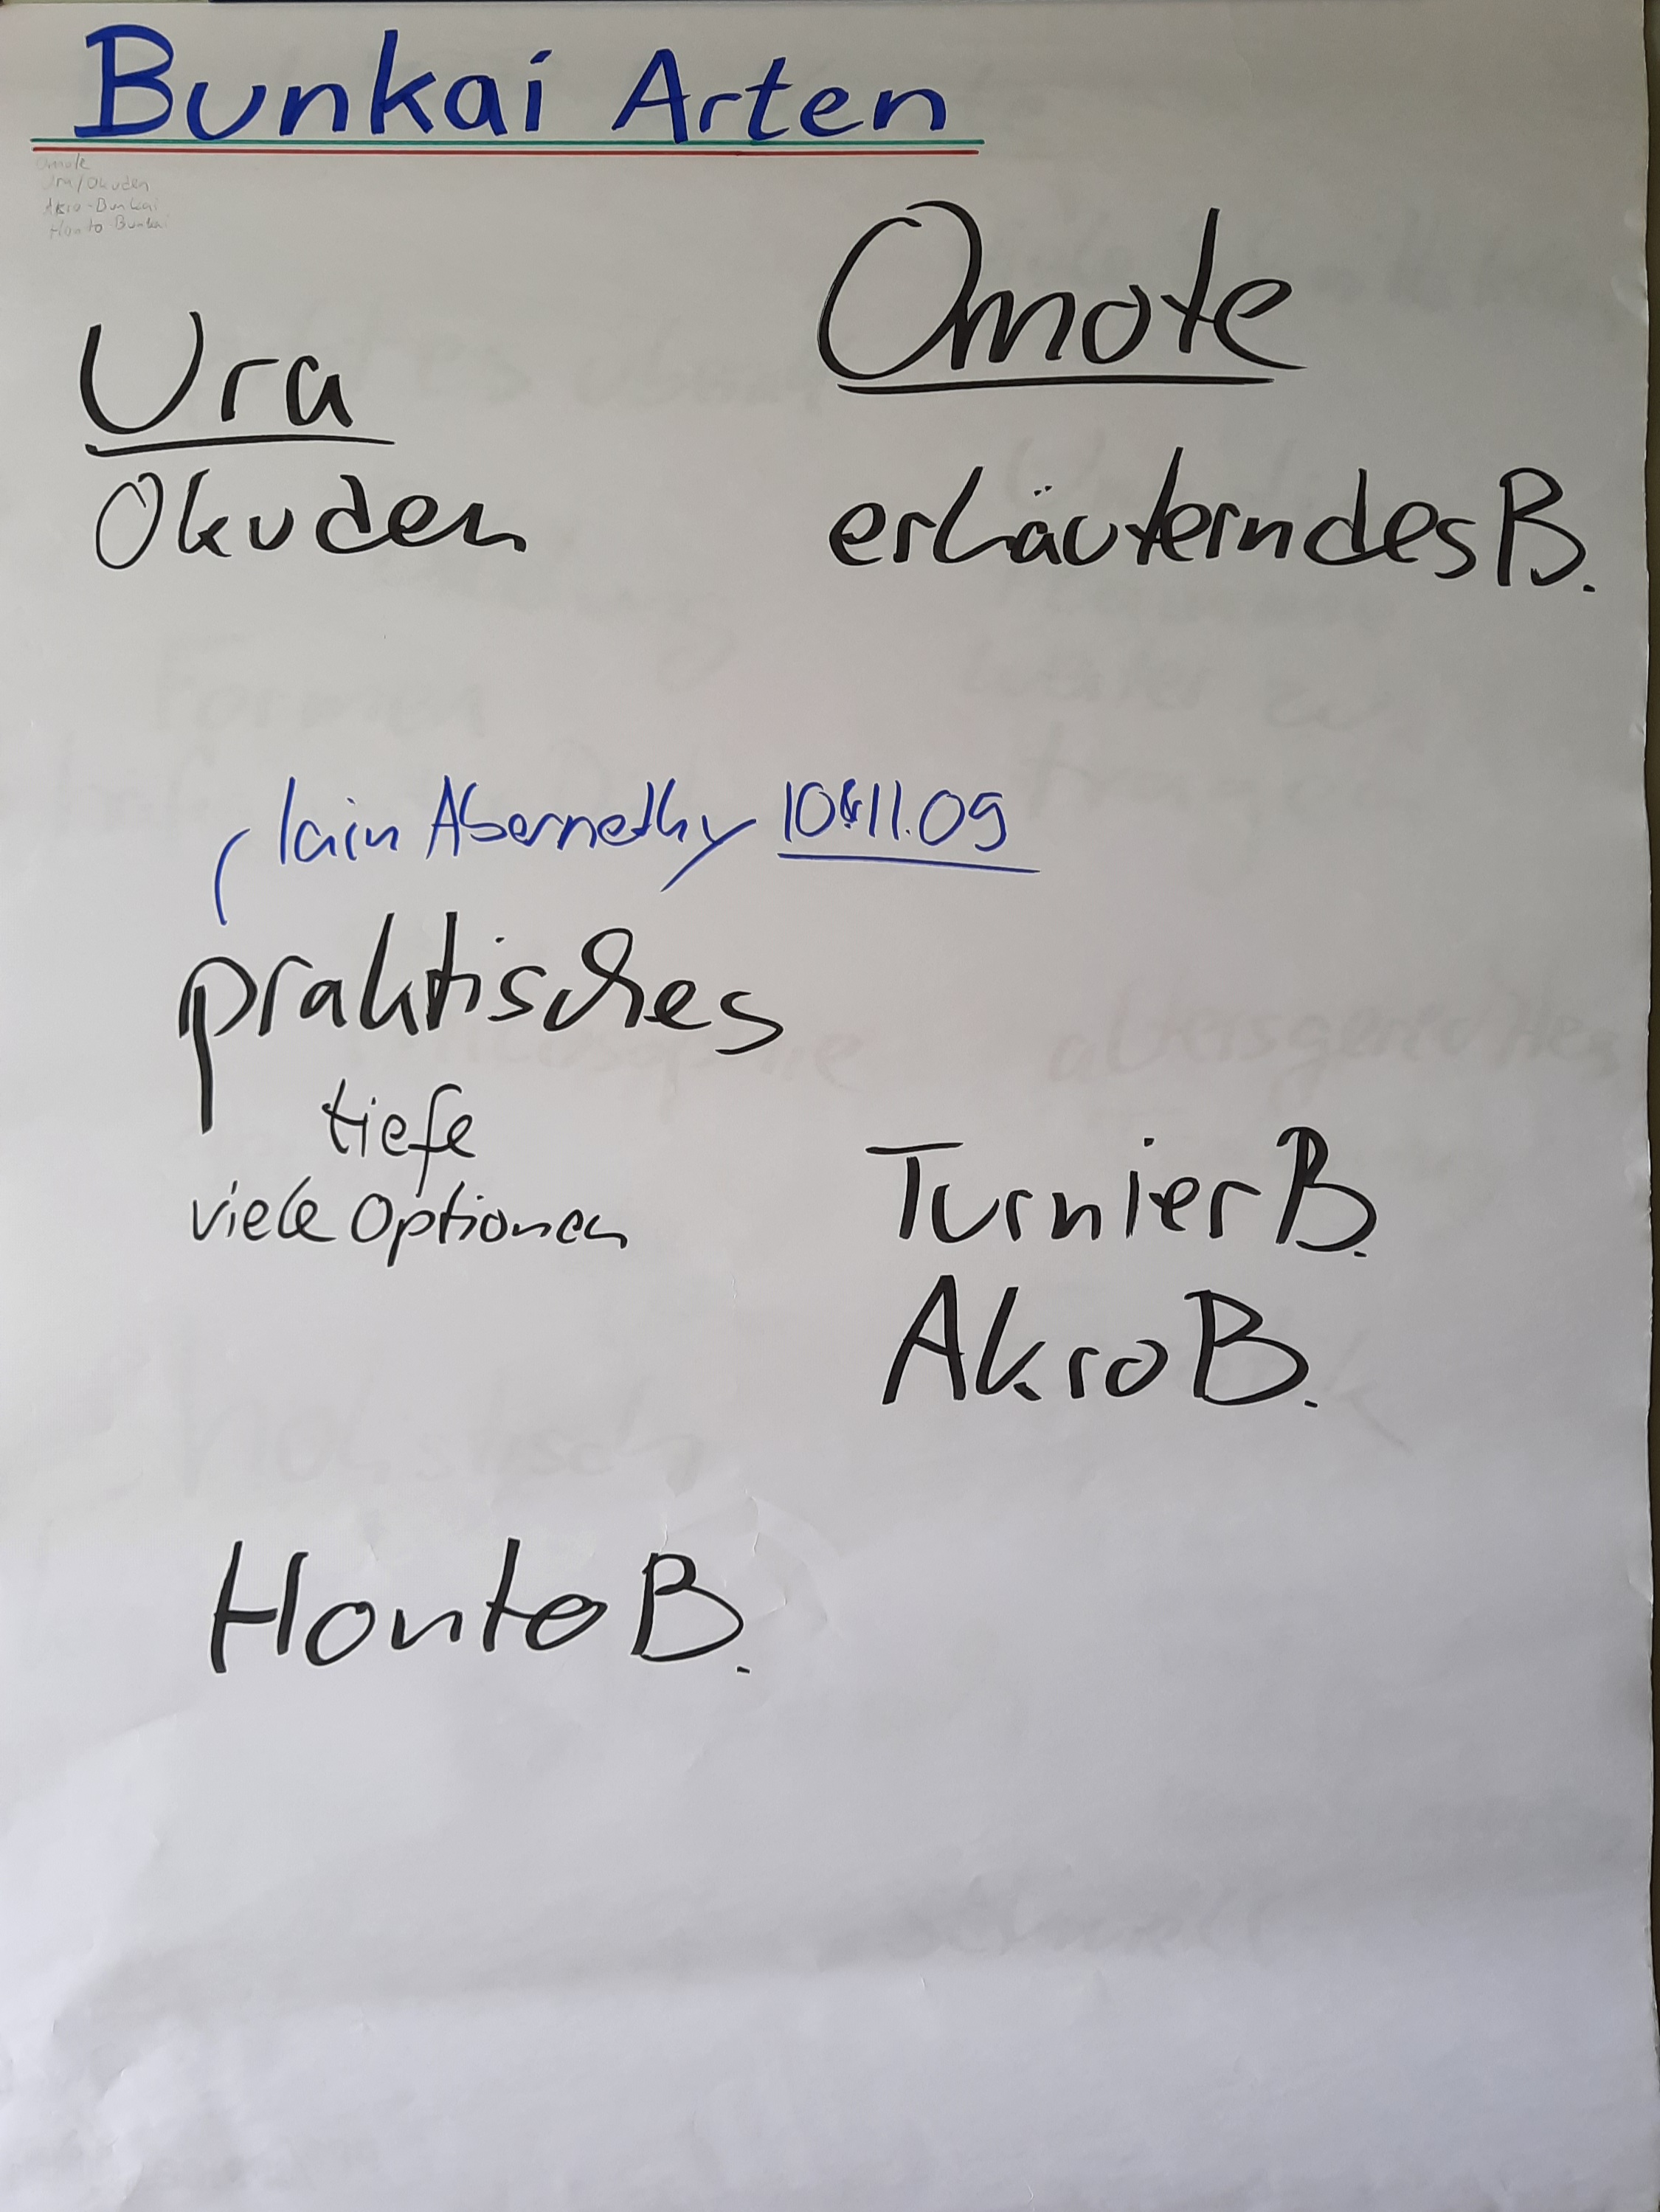 Bunkai Arten
Omote
Ura/Okuden
Akro-Bunkai
Honto Bunkai
Omote
Ura
Okuden
erläuterndes B.
Iain Abernethy 10&11.09
praktisches
tiefe
viele Optionen
Turnier B.
Akro B.
Honto B.